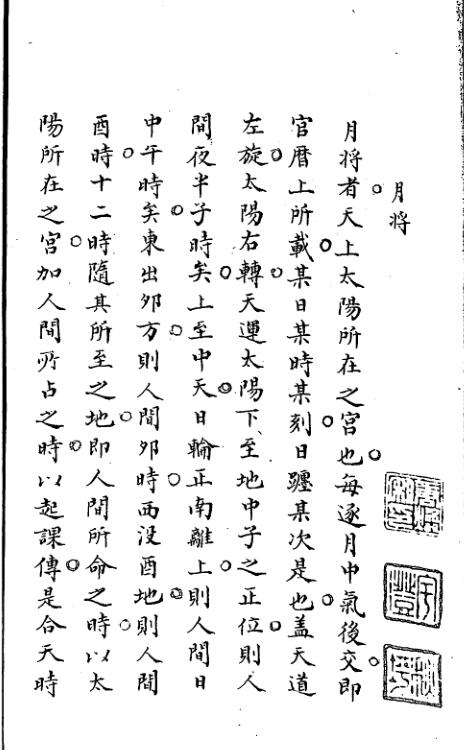 月将
月将者天上太陽所在之宮也每逐月中氣後交即
官曆上所載某日某時某刻日躔某次是也盖天道
左旋太陽右轉天運太陽下至地中子之正位則人
間夜半子時矣上至中天日輪正南離上則人間日
中午時矣東出卯方則人間卯時西没酉地則人間
酉時十二時隨其所至之地即人間所命之時以太
陽所在之宮加人間所占之時以起課傳是合天時